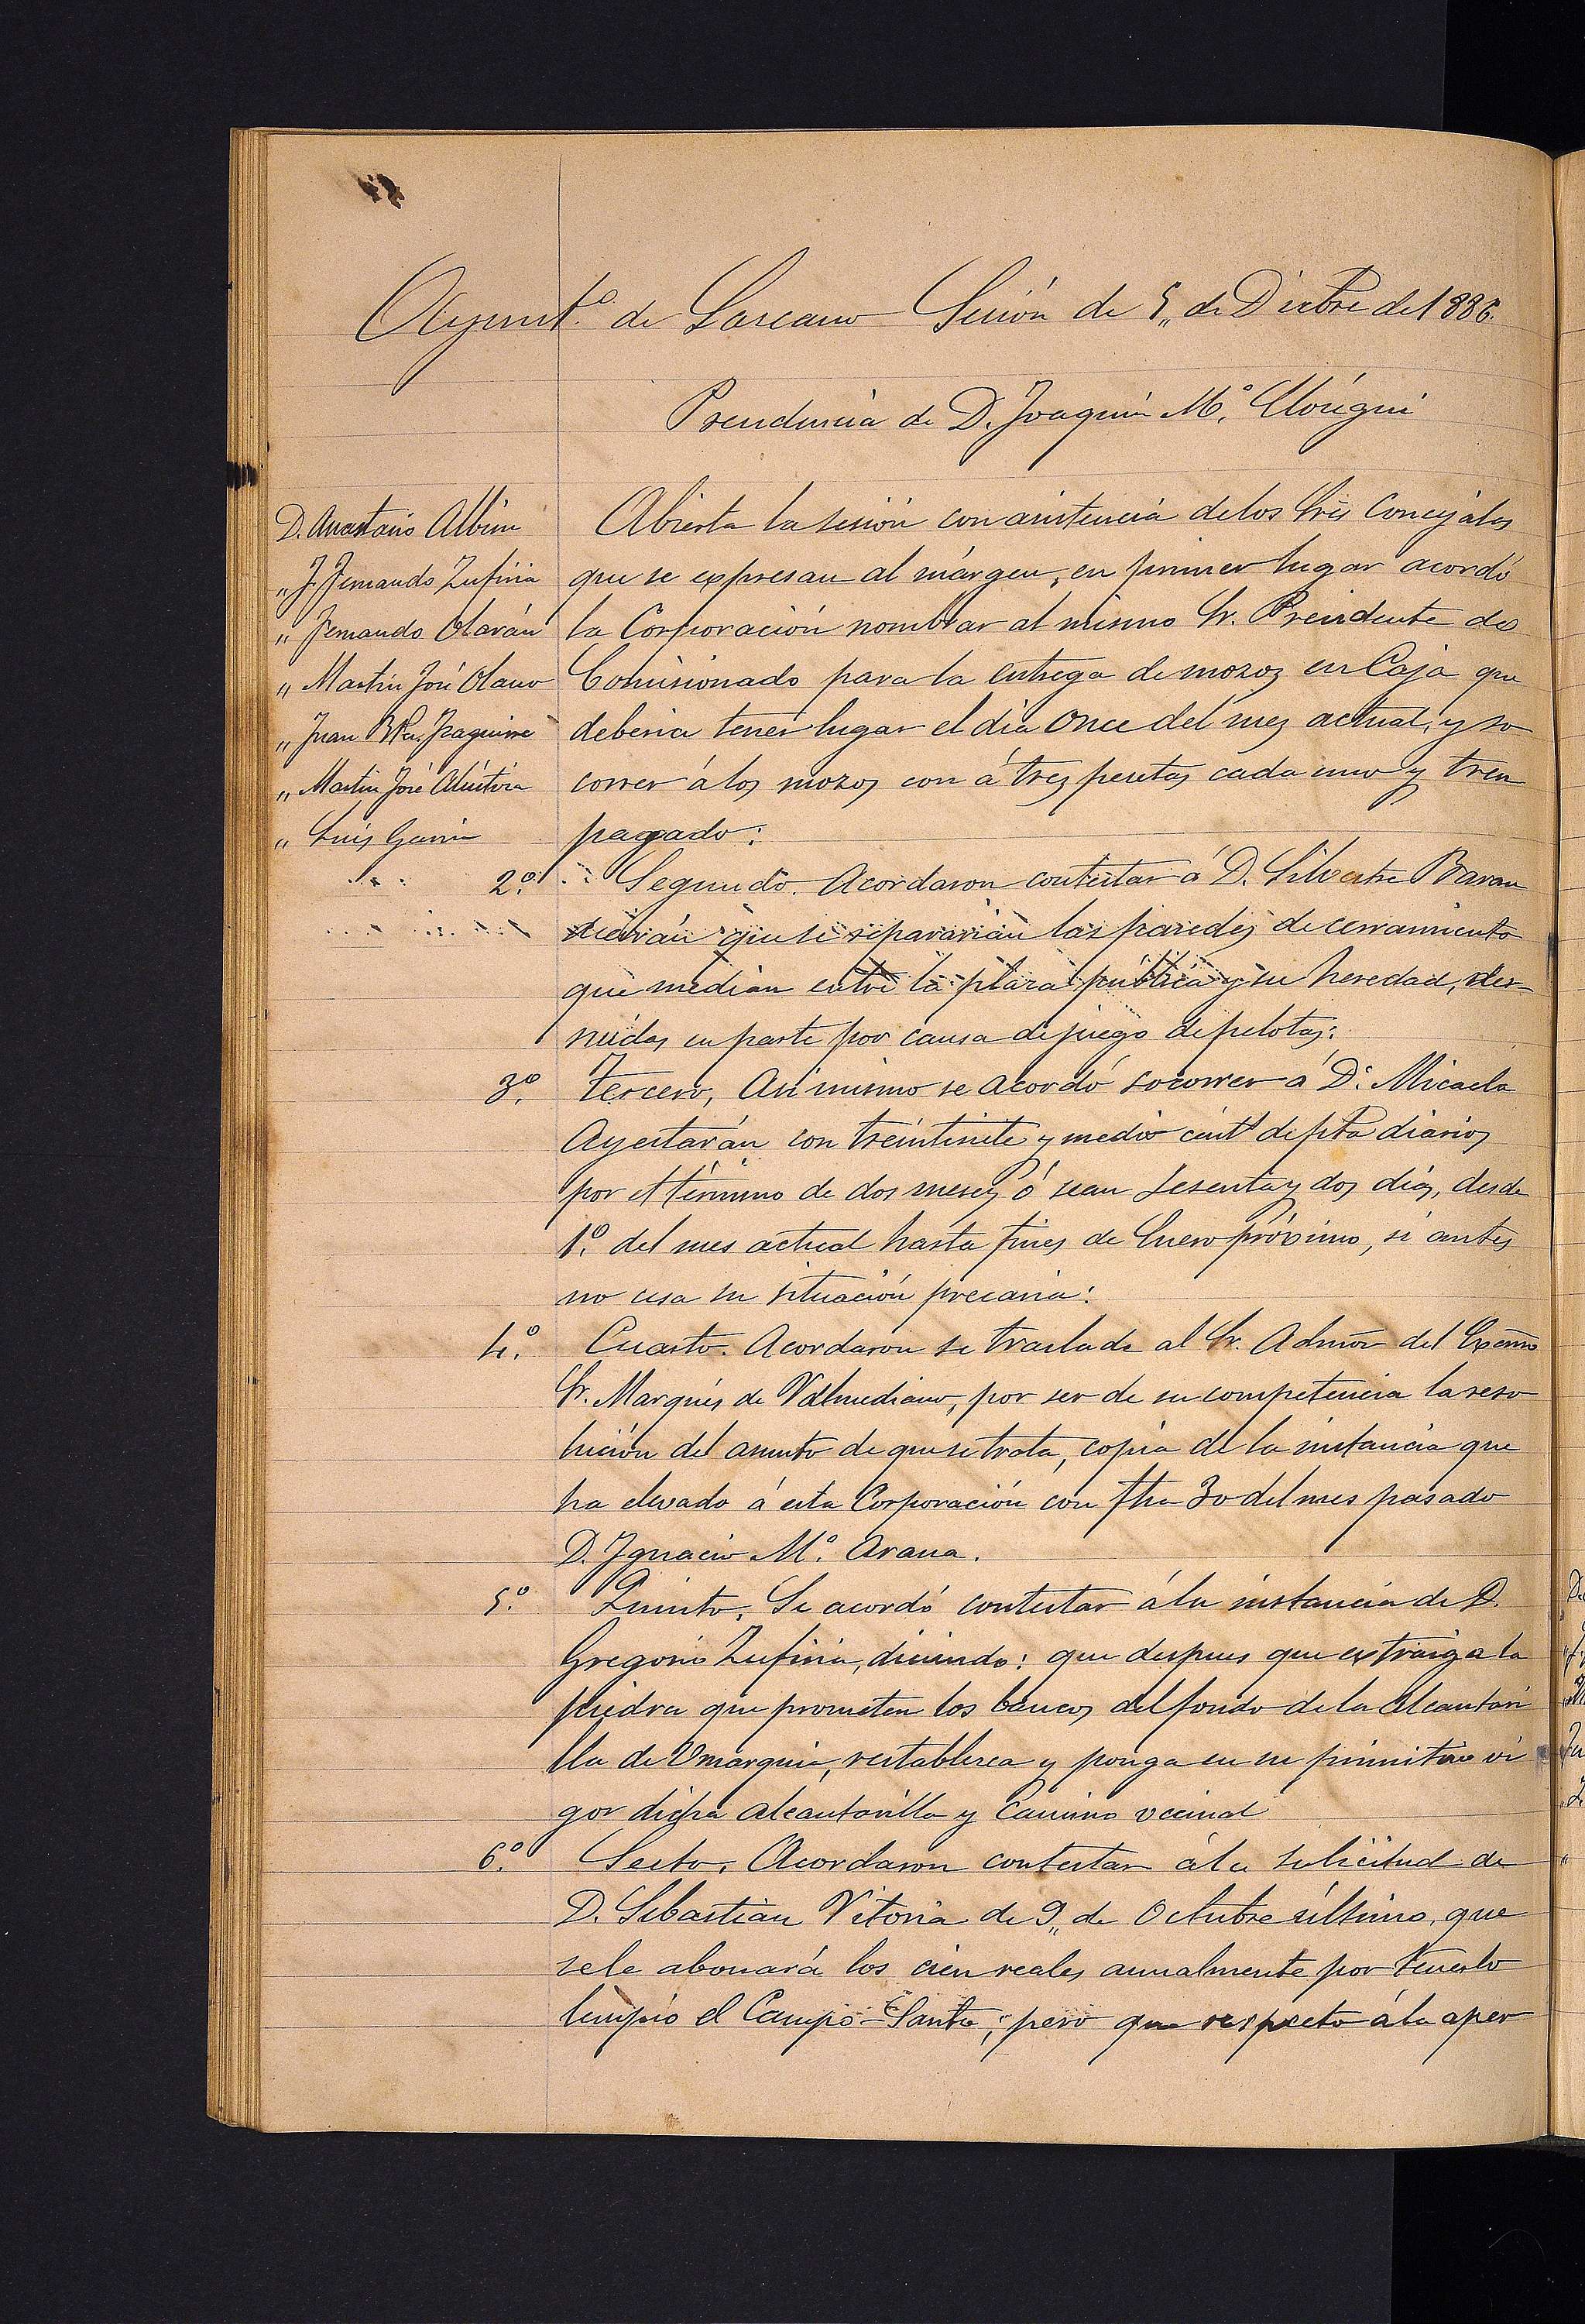 Ayunt.º de Lascano Sesión de 5,, de Dicbre de 1886.
Presidencia de D. Joaquin M.ª Elorigui
D. Anastasio Albisu
" J. Fernando Zufiria
" Fernando Olarán
" Martin José Olano
" Juan Bta. Izaguirre
" Martin José Aluntiza
" Luis Garin
Abierta la sesión con asistencia de los Sres Concejales
que se expresan al márgen, en primer lugar acordó
la Corporación nombrar al mismo Sr. Presidente de
Comisionado para la entrega de mozos en Caja que
deberia tener lugar el dia Once del mes actual, y so
correr á los mozos con á tres pesetas cada uno y tren
pagado:
2.º Segundo. Acordaron contestar á D. Silvestre Baran
diarán que se repararian las paredes de cerramiento
que median entre la plaza pública y su heredad, des-
ruidas en parte por causa de juego de pelotas:
3.º Tercero, Asi mismo se acordó socorrer á D.ª Micaela
Ayestarán con treintisiete y medio cénts de pta diarios
por el término de dos meses ó sean sesenta y dos dias, desde
1.º del mes actual hasta fines de Enero próximo, si antes
no cesa su situación precaria:
4.º Cuarto. Acordaron se traslade al Sr. Admor del Excmo
Sr. Marqués de Valmediano, por ser de su competencia la reso
lución del asunto de que se trata, copia de la instancia que
ha elevado á esta Corporación con fha 30 del mes pasado
D. Ignacio M.ª Arana.
5.º Quinto, Se acordó contestar á la instancia de D.
Gregorio Zufiria, diciendo: que despues que extraiga la
piedra que prometen los bancos del fondo de la alcantari
lla de Umarquia, restablezca y ponga en su primitivo vi
gor dicha alcantarilla y Camino vecinal
6.º Sesto, Acordaron contestar á la solicitud de
D. Sebastian Vitoria de 9,, de Octubre último, que
se le abonará los cien reales anualmente por tenerlo
limpio el Campo-Santo; pero que respecto á la aper